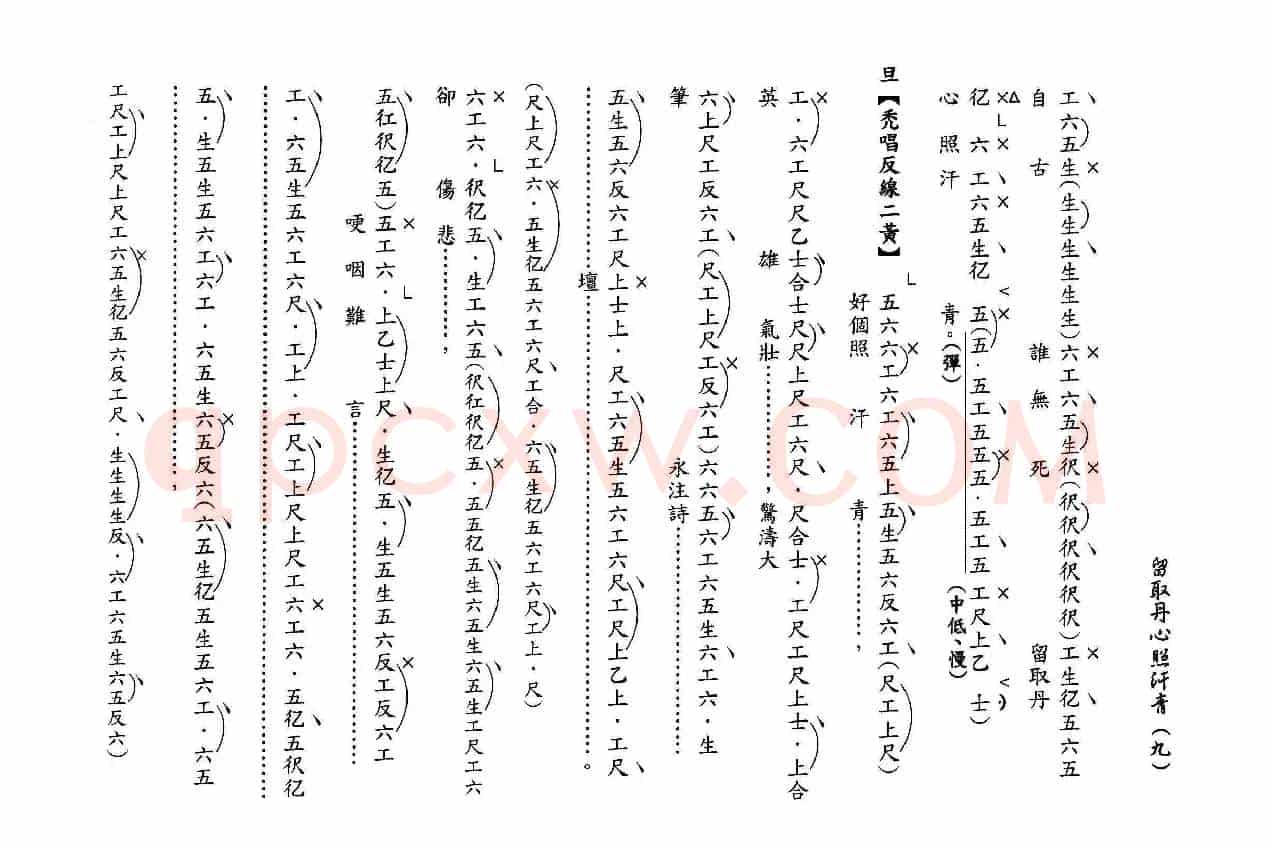 留取丹心照汗青(九)
工六五生(生生生生生生)六工六五生伬(伬伬伬伬伬伬)工生亿五六五
自古誰無死留取丹
亿六工六五生亿五(五.五工五五五.五工五工尺上乙士)
心照汗青。(彈)(中低、慢)
旦【禿唱反線二黃】五六六工六工六五上五生五六反六工(尺工上尺)
好個照汗青…………,
工.六工尺尺乙士合士尺尺上尺工六尺.尺合士.工尺工尺上士.上合
英雄氣壯…………,驚濤大
六上尺工反六工(尺工上尺工反六工)六六五六工六五生六工六.生
筆永注詩…………
五生五六反六工尺上士上.尺工六五生五六工六尺工尺上乙上.工尺
…………壇…………。
(尺上尺工六.五生亿五六工六尺工合.六五生亿五六工六尺工上.尺)
六工六.伬亿五.生工六五(伬仜伬亿五.五五亿五生六五生六五生工尺工六
卻傷悲…………,
五仜伬亿五)五工六.上乙士上尺.生亿五.生五生五六反工反六工
哽咽難言…………
工.六五生五六工六尺.工上.工尺工上尺上尺工六工六.五亿五伬亿
…………
五.生五生五六工六工.六五生六五反六(六五生亿五生五六工.六五
…………,
工尺工上尺上尺工六五生亿五六反工尺.生生生生反.六工六五生六五反六)
qpcxw.com